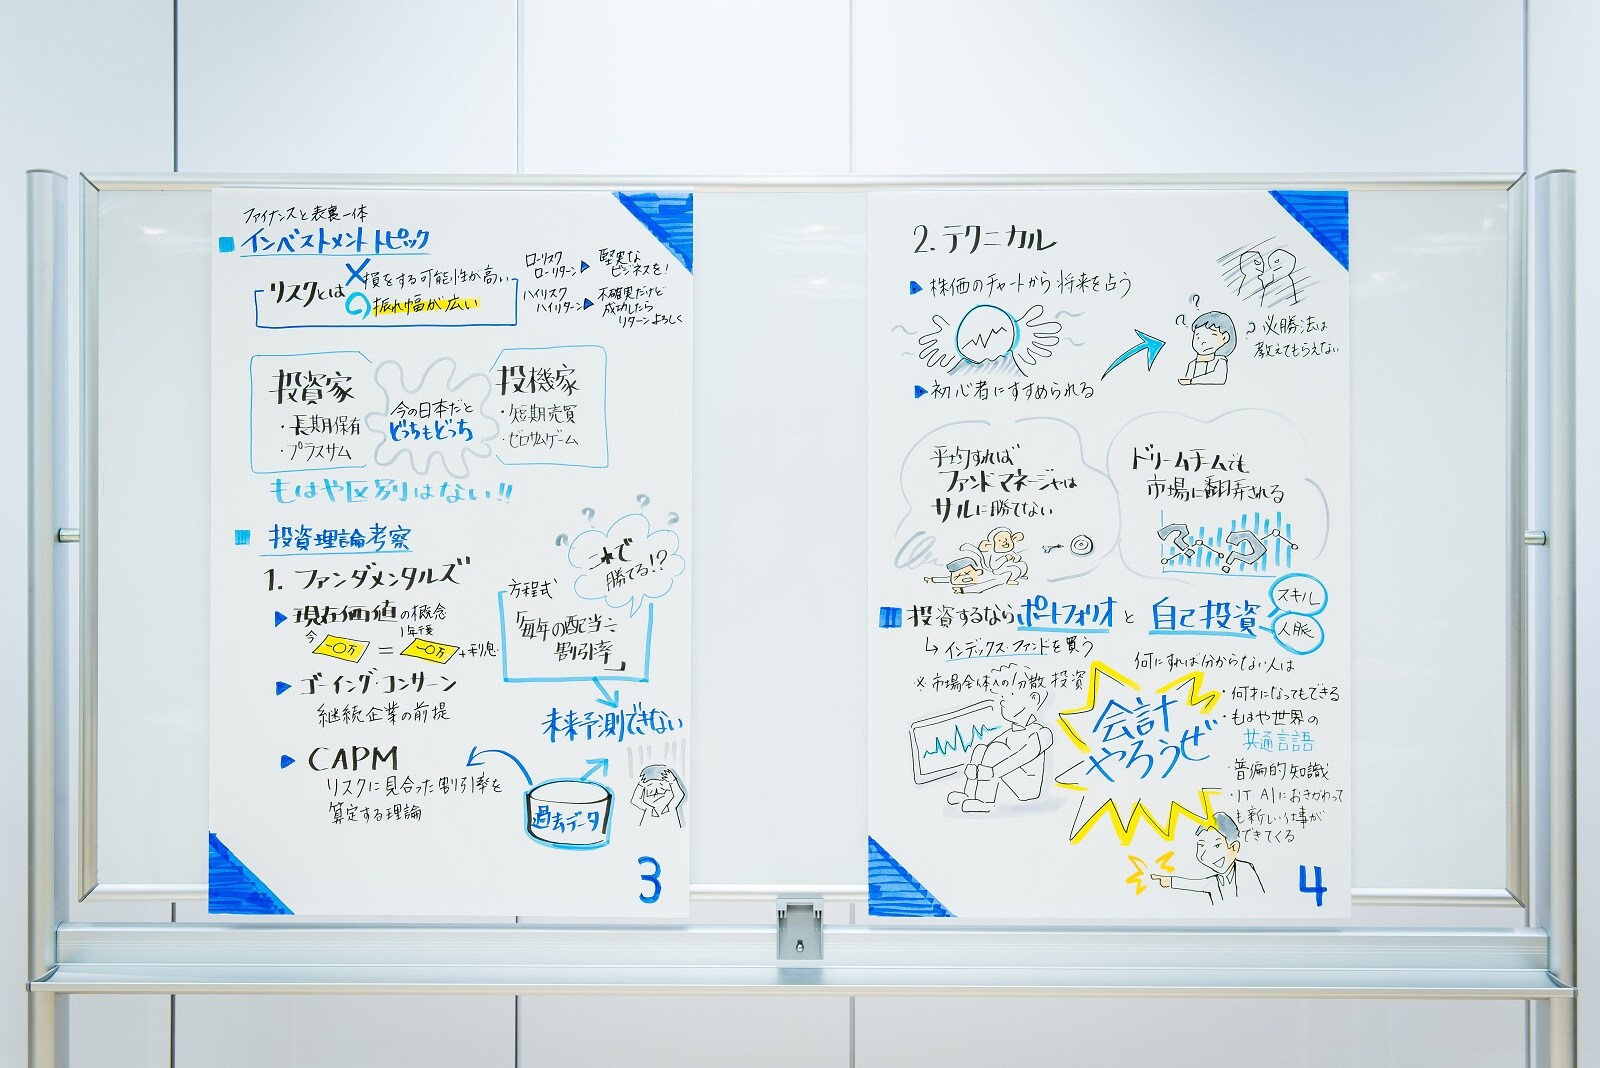 ファイナンスと表裏一体
インベストメントトピック
リスクとは
損をする可能性が高い
振れ幅が広い
ローリスク
ローリターン
堅実な
ビジネスを!
ハイリスク
ハイリターン
不確実だけど
成功したら
リターンよろしく
投資家
・長期保有
・プラスサム
今の日本だと
どっちもどっち
投機家
・短期売買
・ゼロサムゲーム
もはや区別はない!!
投資理論考察
1. ファンダメンタルズ
現在価値の概念
今
一〇万
=
1年後
一〇万
+利息
ゴーイング・コンサーン
継続企業の前提
CAPM
リスクに見合った割引率を
算定する理論
これで
勝てる!?
? ? ? ?
方程式
「毎年の配当÷
割引率」
未来予測できない
過去データ
3
2. テクニカル
株価のチャートから将来を占う
初心者にすすめられる
? ?
必勝法は
教えてもらえない
平均すれば
ファンドマネージャは
サルに勝てない
ドリームチームでも
市場に翻弄される
? ?
投資するならポートフォリオと自己投資
スキル
人脈
↳インデックス・ファンドを買う
※市場全体への分散投資
何にすれば分からない人は
会計
やろうぜ
・何才になってもできる
・もはや世界の
共通言語
・普遍的知識
・IT・AIにおきかわって
も新しい仕事が
できてくる
4